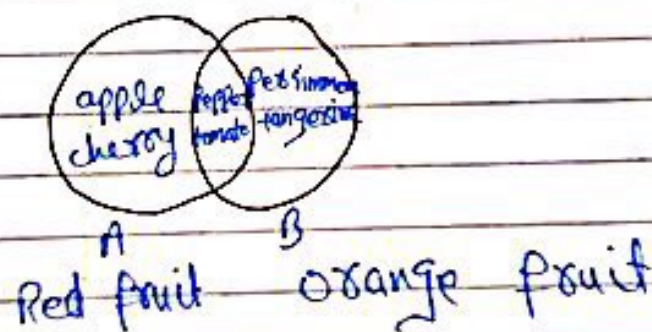 apple
cherry
Pepper
tomato
Persimmon
tangerine
A
B
Red fruit
orange fruit